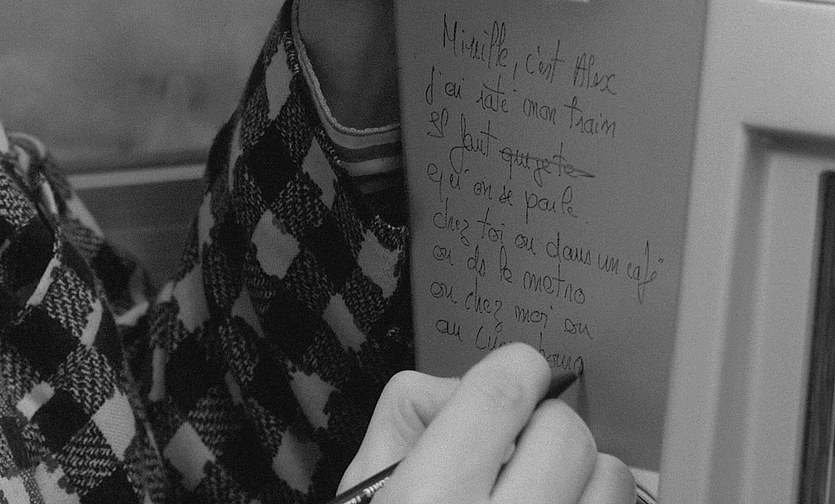 Mireille, c'est Alex
J'ai raté mon train
Il faut
qu'on se parle.
chez toi ou dans un café
ou ds le metro
ou chez moi ou
au